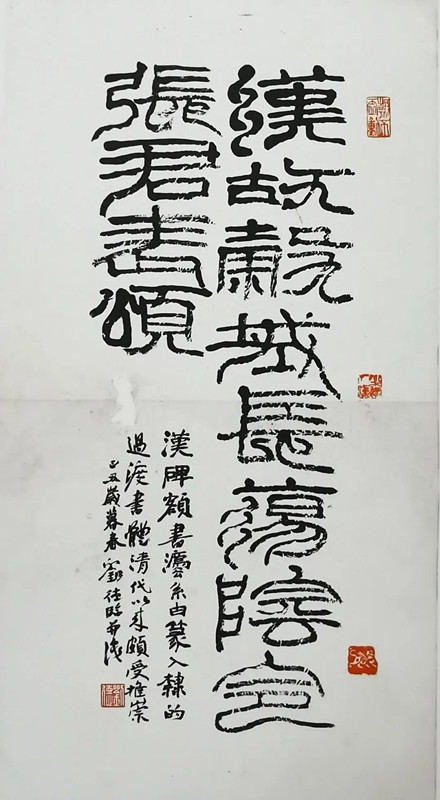 漢故穀城長蕩陰令
張君表頌
漢碑額書灋系由篆入隸的
過渡書體清代以來頗受推崇
丑歲暮春劉